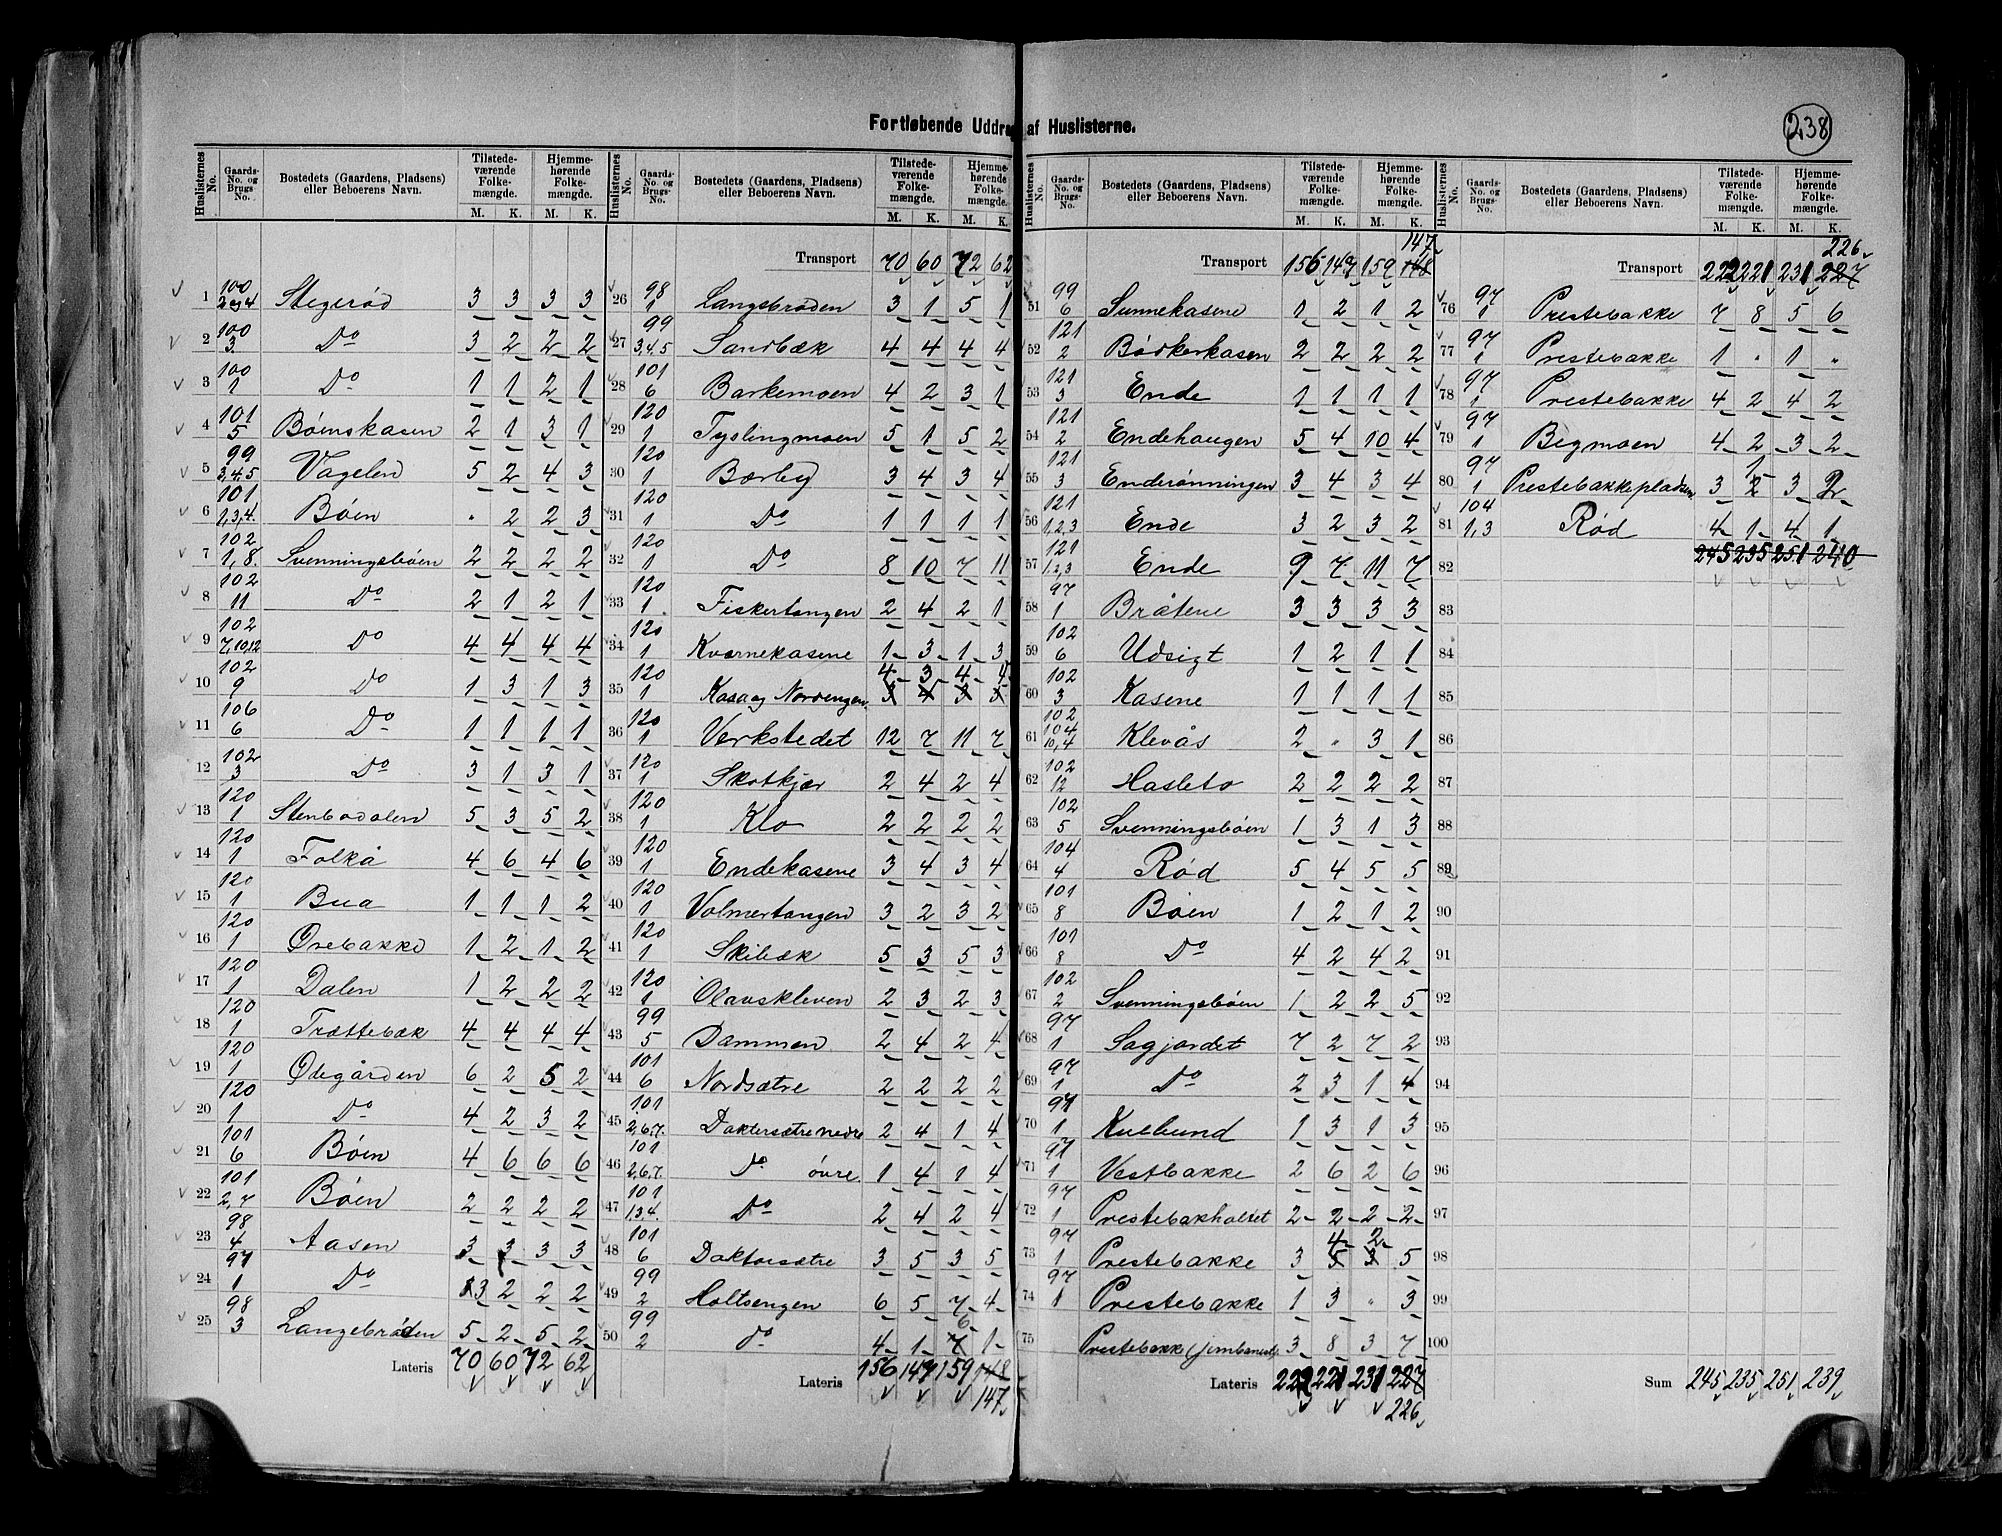 238
Fortløbende Uddr af Huslisterne.
Huslisternes No. | Gaards-No. og Brugs-No. | Bostedets (Gaardens, Pladsens) eller Beboerens Navn. | Tilstedeværende Folkemængde. M. K. | Hjemmehørende Folkemængde. M. K.
1 100 2og4 Stegerød 3 3 3 3
2 100 3 Do 3 2 2 2
3 100 1 Do 1 1 2 1
4 101 5 Bøenskasen 2 1 3 1
5 99 3,4,5 Vagelen 5 2 4 3
6 101 1,3,4. Bøen " 2 2 3
7 102 1,8. Svenningsbøen 2 2 2 2
8 102 11 Do 2 1 2 1
9 102 7,10,12 Do 4 4 4 4
10 102 9 Do 1 3 1 3
11 106 6 Do 1 1 1 1
12 102 3 Do 3 1 3 1
13 120 1 Stenbødalen 5 3 5 2
14 120 1 Folkå 4 6 4 6
15 120 1 Bua 1 1 1 2
16 120 1 Ørebakke 1 2 1 2
17 120 1 Dalen 1 2 2 2
18 120 1 Trættebæk 4 4 4 4
19 120 1 Ødegården 6 2 5 2
20 120 1 Do 4 2 3 2
21 101 6 Bøen 4 6 6 6
22 101 2,7 Bøen 2 2 2 2
23 98 4 Aasen 3 3 3 3
24 97 1 Do 3 2 2 2
25 98 3 Langebrøden 5 2 5 2
Lateris 70 60 72 62
Transport 70 60 72 62
26 98 1 Langebrøden 3 1 5 1
27 99 3,4,5 Sandbæk 4 4 4 4
28 101 6 Barkemoen 4 2 3 1
29 120 1 Tyslingmoen 5 1 5 2
30 120 1 Bærby 3 4 3 4
31 120 1 Do 1 1 1 1
32 120 1 Do 8 10 7 11
33 120 1 Fiskertangen 2 4 2 1
34 120 1 Kvernekasene 1 3 1 3
4 3 4 4
35 120 1 Kasa og Nordengen 3 4 3 5
36 120 1 Verkstedet 12 7 11 7
37 120 1 Skotkjær 2 4 2 4
38 120 1 Klo 2 2 2 2
39 120 1 Endekasene 3 4 3 4
40 120 1 Volmertangen 3 2 3 2
41 120 1 Skibæk 5 3 5 3
42 120 1 Olavskleven 2 3 2 3
43 99 5 Dammen 2 4 2 4
44 101 6 Nordsætre 2 2 2 2
45 101 2,6,7. Doktersætre nedre 2 4 1 4
46 101 2,6,7. Do øvre 1 4 1 4
47 101 1.3.4. Do 2 4 2 4
48 101 6 Doktorsætre 3 5 3 5
49 99 2 Holtsengen 6 5 7 4
6
50 99 2 do 4 1 7 1
Lateris 156 147 159 148
147
Transport 156 147 159 148
147
51 99 6 Sunnekasene 1 2 1 2
52 121 2 Bødkerkasen 2 2 2 2
53 121 3 Ende 1 1 1 1
54 121 2 Endehaugen 5 4 10 4
55 121 3 Enderønningen 3 4 3 4
56 121 1,2,3 Ende 3 2 3 2
57 121 1,2,3 Ende 9 7 11 7
58 97 1 Bråtene 3 3 3 3
59 102 6 Udsigt 1 2 1 1
60 102 3 Kasene 1 1 1 1
61 102 104 10,4 Klevås 2 " 3 1
62 102 12 Hasleto 2 2 2 2
63 102 5 Svenningsbøen 1 3 1 3
64 104 4 Rød 5 4 5 5
65 101 8 Bøen 1 2 1 2
66 101 8 Do 4 2 4 2
67 102 2 Svenningsbøen 1 2 2 5
68 97 1 Sagjordet 7 2 7 2
69 97 1 Do 2 3 1 4
70 97 1 Kulelund 1 3 1 3
71 97 1 Vestbakke 2 6 2 6
72 97 1 Prestebakholtet 2 2 2 2
4 2
73 97 1 Prestebakke 3 5 3 5
74 97 1 Prestebakke 1 3 " 3
75 Prestebakke (jernbanest) 3 8 3 7
Lateris 222 221 231 227
226
Transport 222 221 231 227
226
76 97 1 Prestebakke 7 8 5 6
77 97 1 Prestebakke 1 " 1 "
78 97 1 Prestebakke 4 2 4 2
79 97 1 Bigmoen 4 2 3 2
1
80 97 1 Prestebakkepladsen 3 2 3 2
81 104 1,3 Rød 4 1 4 1
82 245 235 251 240
83
84
85
86
87
88
89
90
91
92
93
94
95
96
97
98
99
100
Sum 245 235 251 239